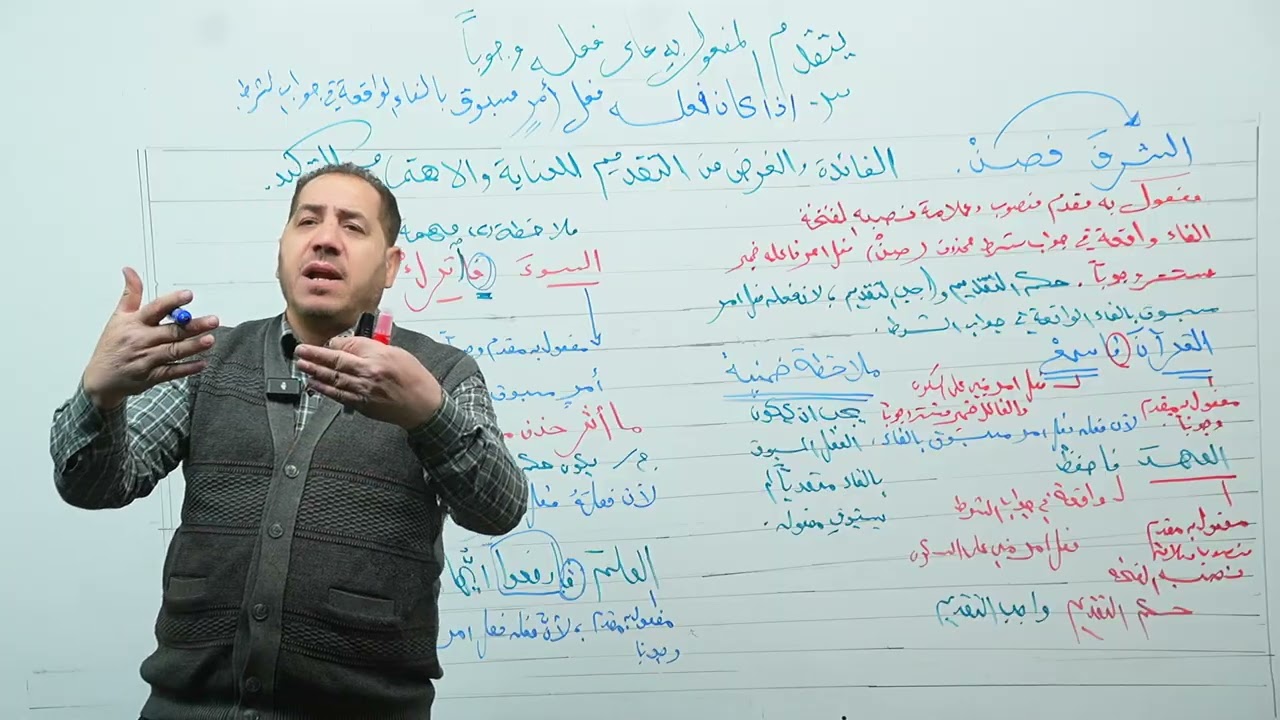 يتقدم المفعول به على فعله وجوباً
٣- اذا كان فعله فعل أمرٍ مسبوق بالفاء الواقعة في جواب الشرط
الشرفَ فصنْ. الفائدة والغرض من التقديم للعناية والاهتمام
مفعول به مقدم منصوب وعلامة نصبه الفتحة
الفاء واقعة في جواب شرط محذوف (صنْ) فعل امر فاعله ضمير
مستتر وجوباً. حكم التقديم واجب التقديم، لأن فعله فعل امر
مسبوق بالفاء الواقعة في جواب الشرط.
القرآنَ فاسمعْ
فعل امر مبني على السكون
والفاعل ضمير مستتر وجوباً
مفعول به مقدم
وجوباً
لأن فعله فعل امر مسبوق بالفاء
العهدَ فاحفظْ
واقعة في جواب الشرط
مفعول به مقدم
فعل امر مبني على السكون
حكم التقديم واجب التقديم
ملاحظة ضمنية
يجب ان يكون
الفعل المسبوق
بالفاء متعدياً لم
يستوفِ مفعوله.
ملاحظة مهمة
السوءَ فأترك
مفعول به مقدم
أمرٍ مسبوق
ما أثر حذف
ج/ يكون
لأن فعله فعل
العلمَ فارفعوا أيُّها
مفعول به مقدم، لأن فعله فعل امر
وجوبا